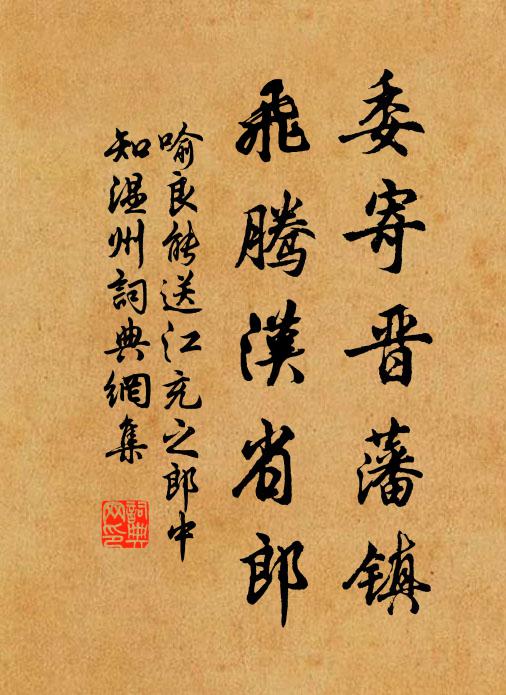 委寄晋藩镇
飛騰漢省郎
喻良能送江充之郎中
知温州詞典網集
詞典
网印